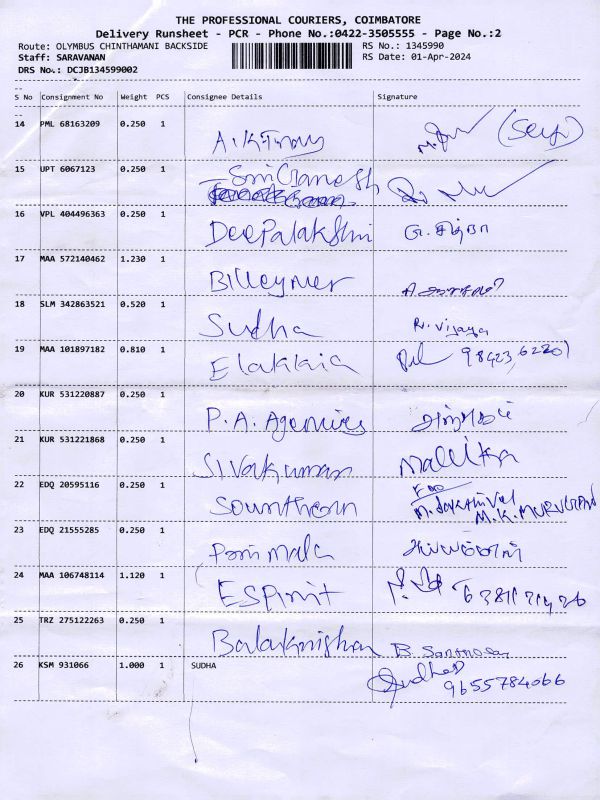 THE PROFESSIONAL COURIERS, COIMBATORE
Delivery Runsheet - PCR - Phone No.:0422-3505555 - Page No.:2
Route: OLYMBUS CHINTHAMANI BACKSIDE RS No.: 1345990
Staff: SARAVANAN RS Date: 01-Apr-2024
DRS No.: DCJB134599002
S No Consignment No Weight PCS Consignee Details Signature
14 PML 68163209 0.250 1
(Self)
15 UPT 6067123 0.250 1
Sri Ganesh
16 VPL 404496363 0.250 1
Deepalakshmi
17 MAA 572140462 1.230 1
18 SLM 342863521 0.520 1
Sudha R. Vijaya
19 MAA 101897182 0.810 1
Elakkia
20 KUR 531220887 0.250 1
P.A. Agencies
21 KUR 531221868 0.250 1
Sivakumar Mallika
22 EDQ 20595116 0.250 1
Sounthern For
M. Sakthivel
M.K. MURUGAN
23 EDQ 21555285 0.250 1
Parimala
24 MAA 106748114 1.120 1
Espirit
25 TRZ 275122263 0.250 1
Balakrishnan
26 KSM 931066 1.000 1 SUDHA
Sudha D
9655784066